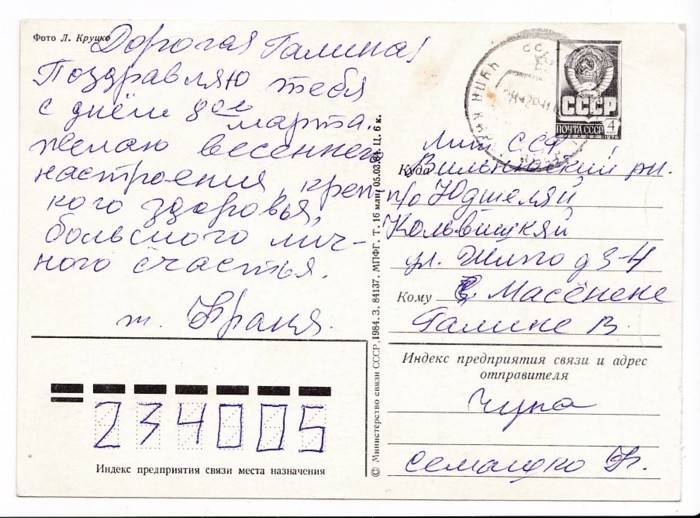 Фото Л. Круцко
Дорогая Галина!
Поздравляю тебя
с днём 8ое
марта,
желаю весеннего
настроения, креп-
кого здоровья,
большого лич-
ного счастья.
т. Франя.
234005
Индекс предприятия связи места назначения
© Министерство связи СССР, 1984. З. 84137. МПФГ. Т. 16 млн 05.03.84. Ц. 6 к.
СССР
ПОЧТА СССР 4
Лит ССР
Куда Вильнюсский рн.
п/о Юдшеляй
ул. д 3-4
Кому Масёнене
Галине В.
Индекс предприятия связи и адрес
отправителя
Чупа
Семашко Ф.